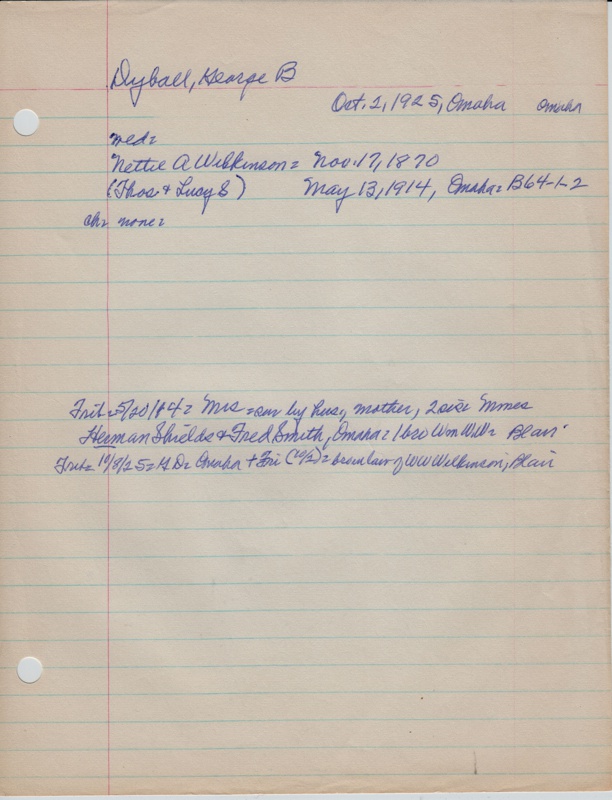 Dyball, George B
Oct. 2, 1925, Omaha Omaha
med=
Nettie A Wilkinson = Nov. 17, 1870
(Thos & Lucy E) May 13, 1914, Omaha = B64-1-2
ch= none=
Trib = 5/20/14 = Mrs = sur by hus, mother, 2 sis = Mmes
Herman Shields & Fred Smith, Omaha = 1 bro Wm W W = Blair
Trib = 10/8/25 = G D = Omaha + Fri (10/2) = broinlaw of W W Wilkinson, Blair